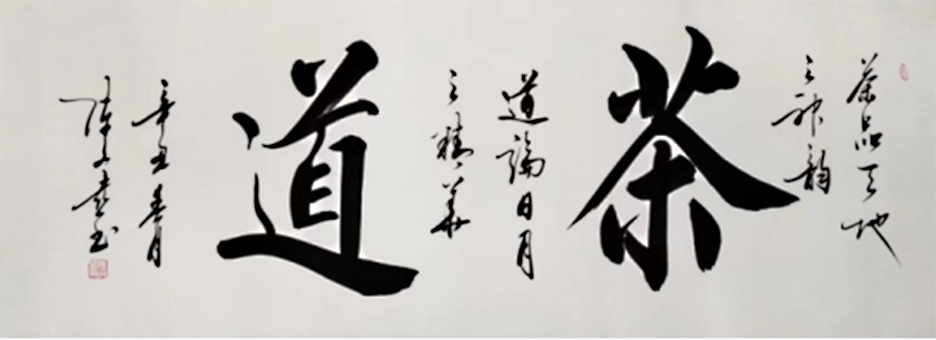 茶品天地
之神韵
茶
道论日月
之精华
道
辛丑春月
陈文
书